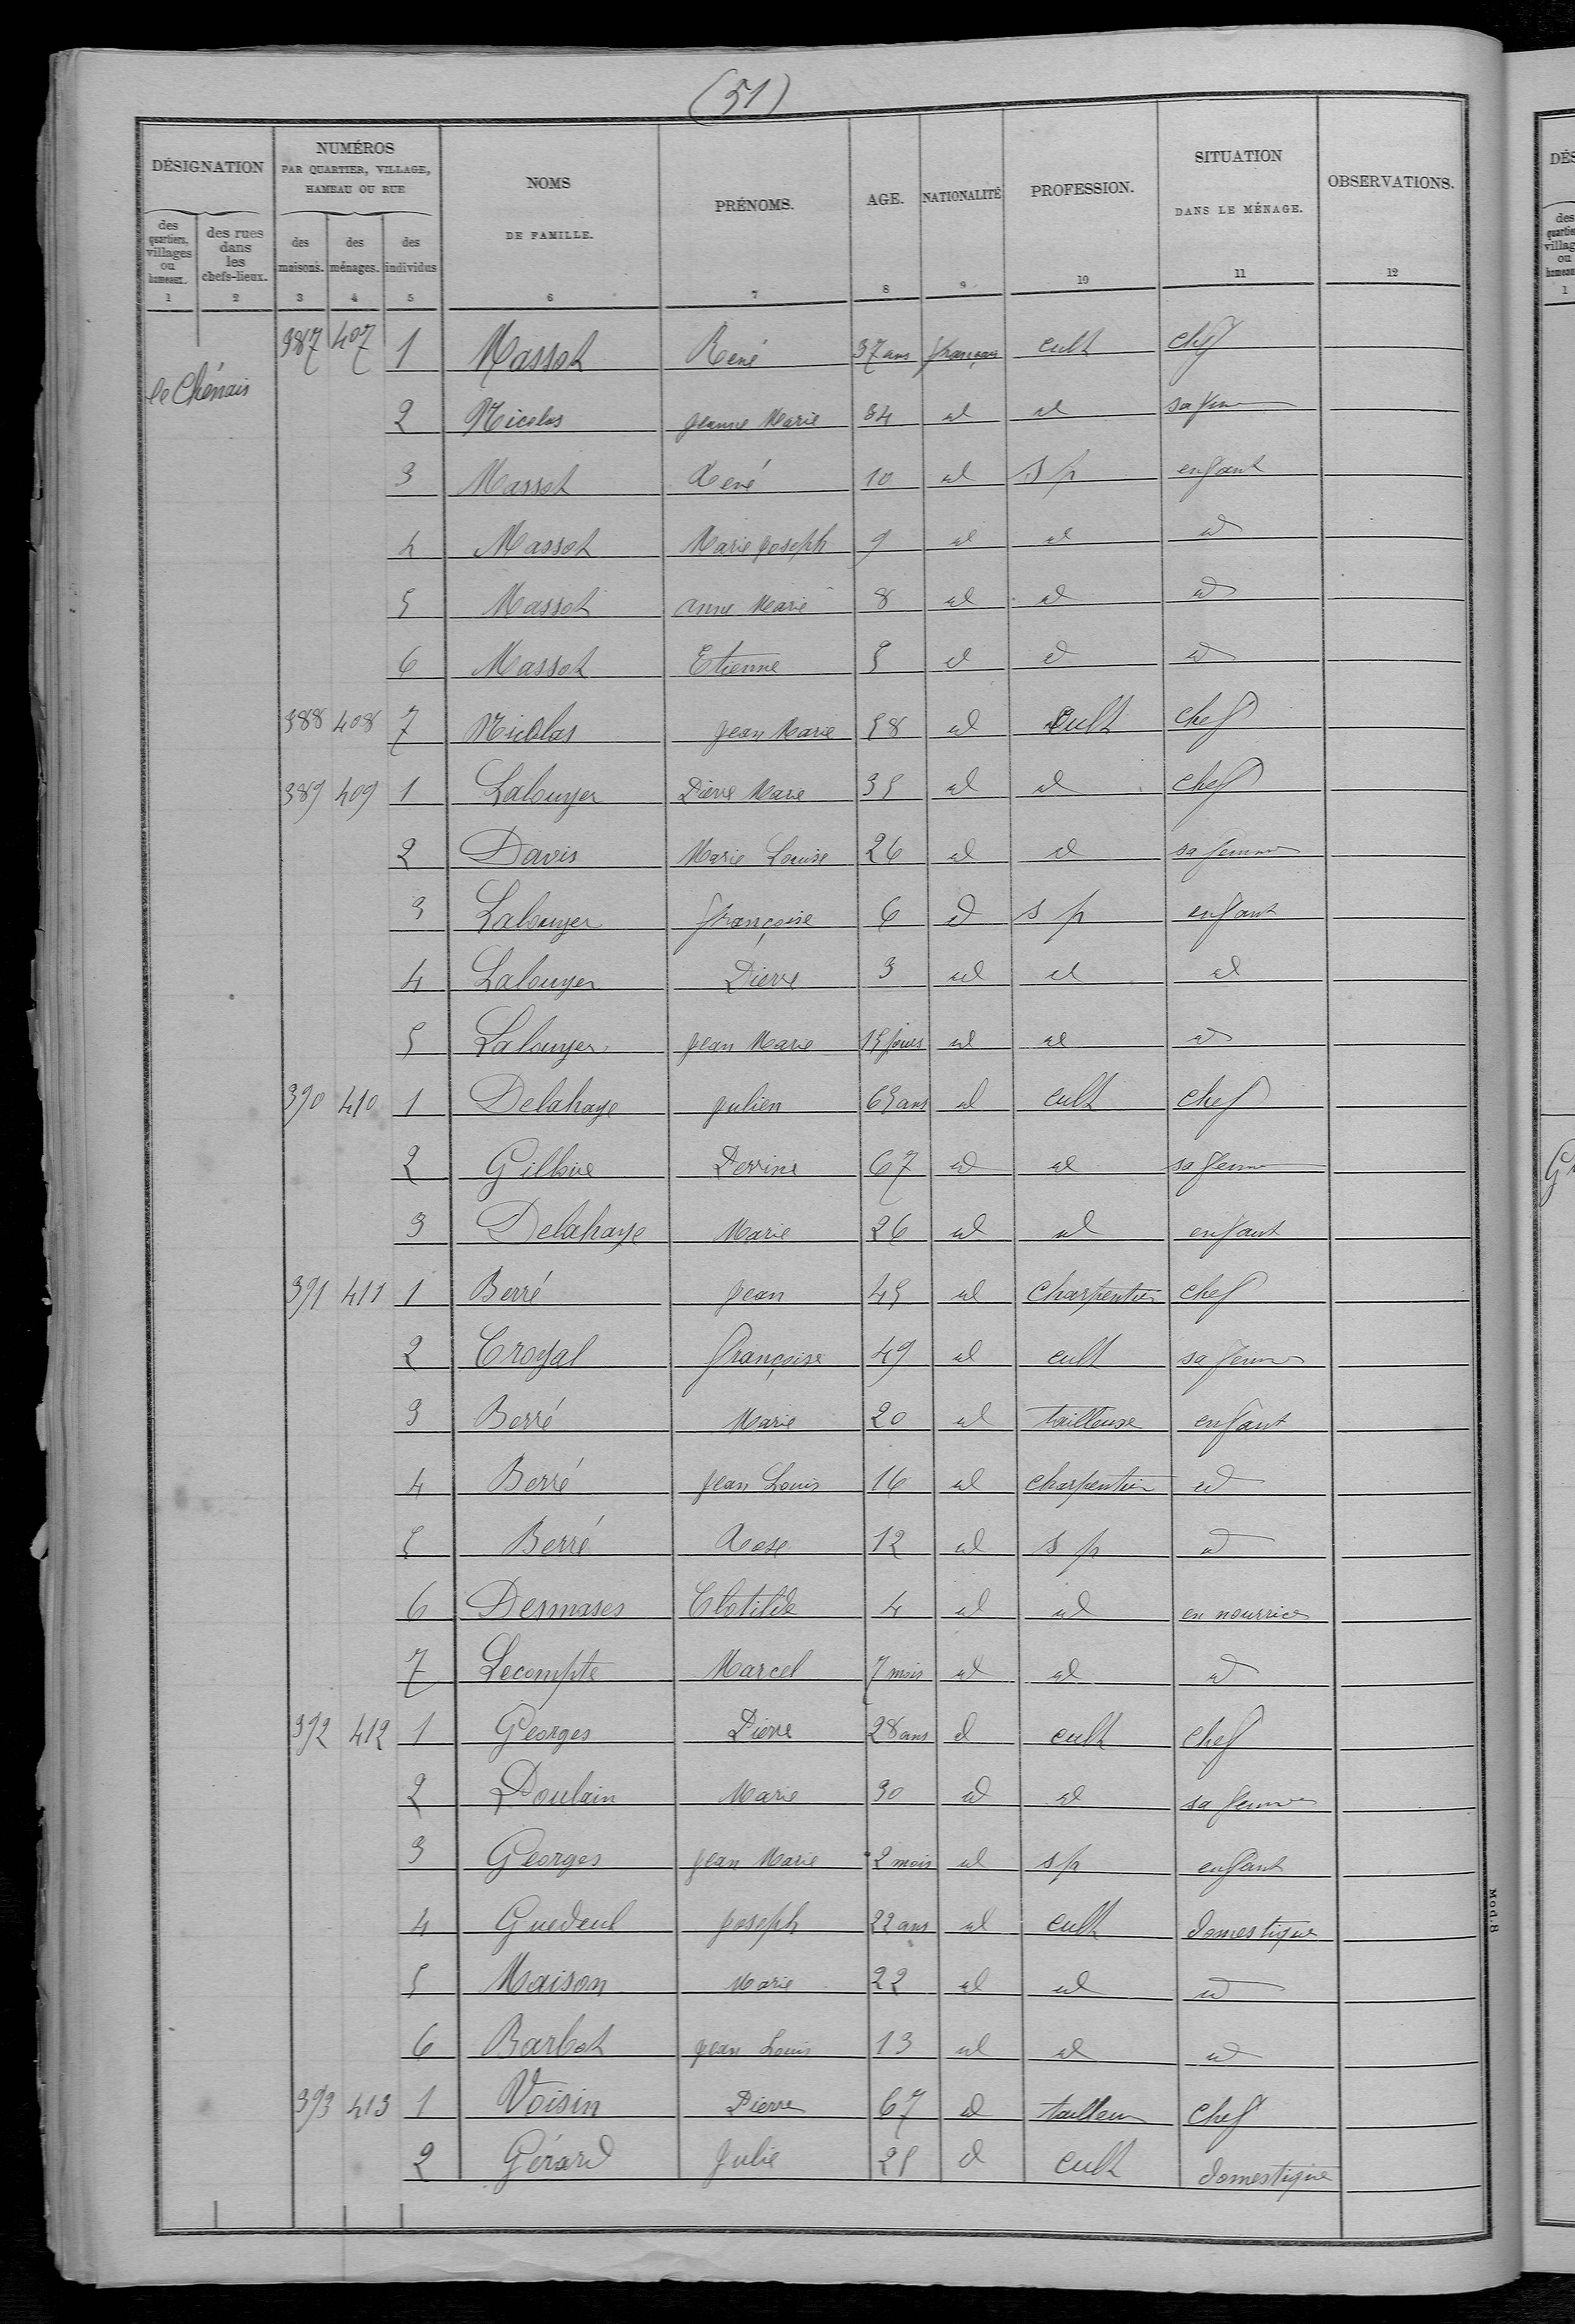 (51)
DÉSIGNATION
NUMÉROS
PAR QUARTIER, VILLAGE,
HAMEAU OU RUE
NOMS
DE FAMILLE.
PRÉNOMS.
AGE.
NATIONALITÉ
PROFESSION.
SITUATION
DANS LE MÉNAGE.
OBSERVATIONS.
des quartiers, villages ou hameaux.
des rues dans les chefs-lieux.
des maisons.
des ménages.
des individus
1 2 3 4 5 6 7 8 9 10 11 12
387 407 1 Massot René 37 ans français cult chef
le Chénais
2 Nicolas Jeanne Marie 34 id id sa femme
3 Massot René 10 id s p enfant
4 Massot Marie Joseph 9 id id id
5 Massot Anne Marie 8 id id id
6 Massot Etienne 5 id id id
388 408 7 Nicolas Jean Marie 58 id Cult chef
389 409 1 Labouyer Pierre Marie 35 id id chef
2 Davis Marie Louise 26 id id sa femme
3 Labouyer françoise 6 id s p enfant
4 Labouyer Pierre 3 id id id
5 Labouyer Jean Marie 15 jours id id id
390 410 1 Delahaye Julien 65 ans id cult chef
2 Perrine 67 id id sa femme
3 Delahaye Marie 26 id id enfant
391 411 1 Berré Jean 45 id charpentier chef
2 Croyal françoise 49 id cult sa femme
3 Berré Marie 20 id tailleuse enfant
4 Berré Jean Louis 16 id charpentier id
5 Berré Rose 12 id s p id
6 Desmases Clotilde 4 id id en nourrice
7 Lecompte Marcel 7 mois id id id
392 412 1 Georges Pierre 28 ans id cult chef
2 Poulain Marie 30 id id sa femme
3 Georges Jean Marie 2 mois id s p enfant
4 Guedeul Joseph 22 ans id cult domestique
5 Maison Marie 22 id id id
6 Barbot Jean Louis 13 id id id
393 413 1 Voisin Pierre 67 id tailleur chef
2 Gérard Julie 25 id cult domestique
Mod. 8